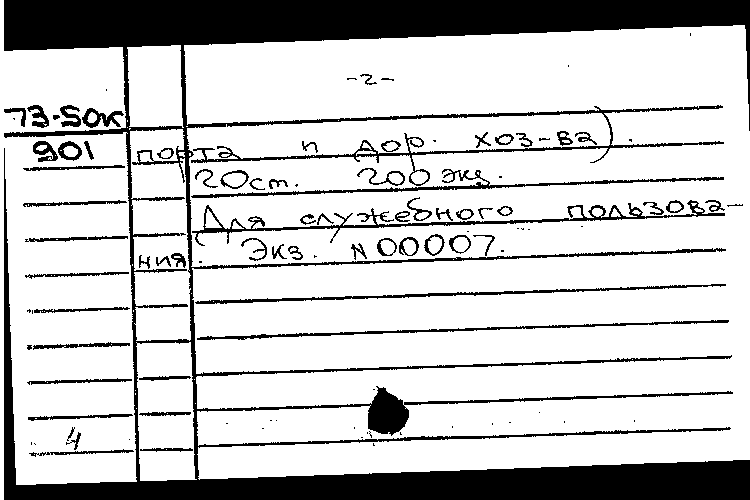 -2-
73-50к
901 порта и дор. хоз-ва).
20 ст. 200 экз.
Для служебного пользова-
ния. Экз. N 00007.
4